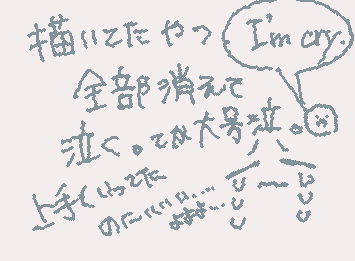 描いてたやつ
I'm cry.
全部消えて
泣く。てか大号泣。
上手くいってた
のにいいい...
よよよ...